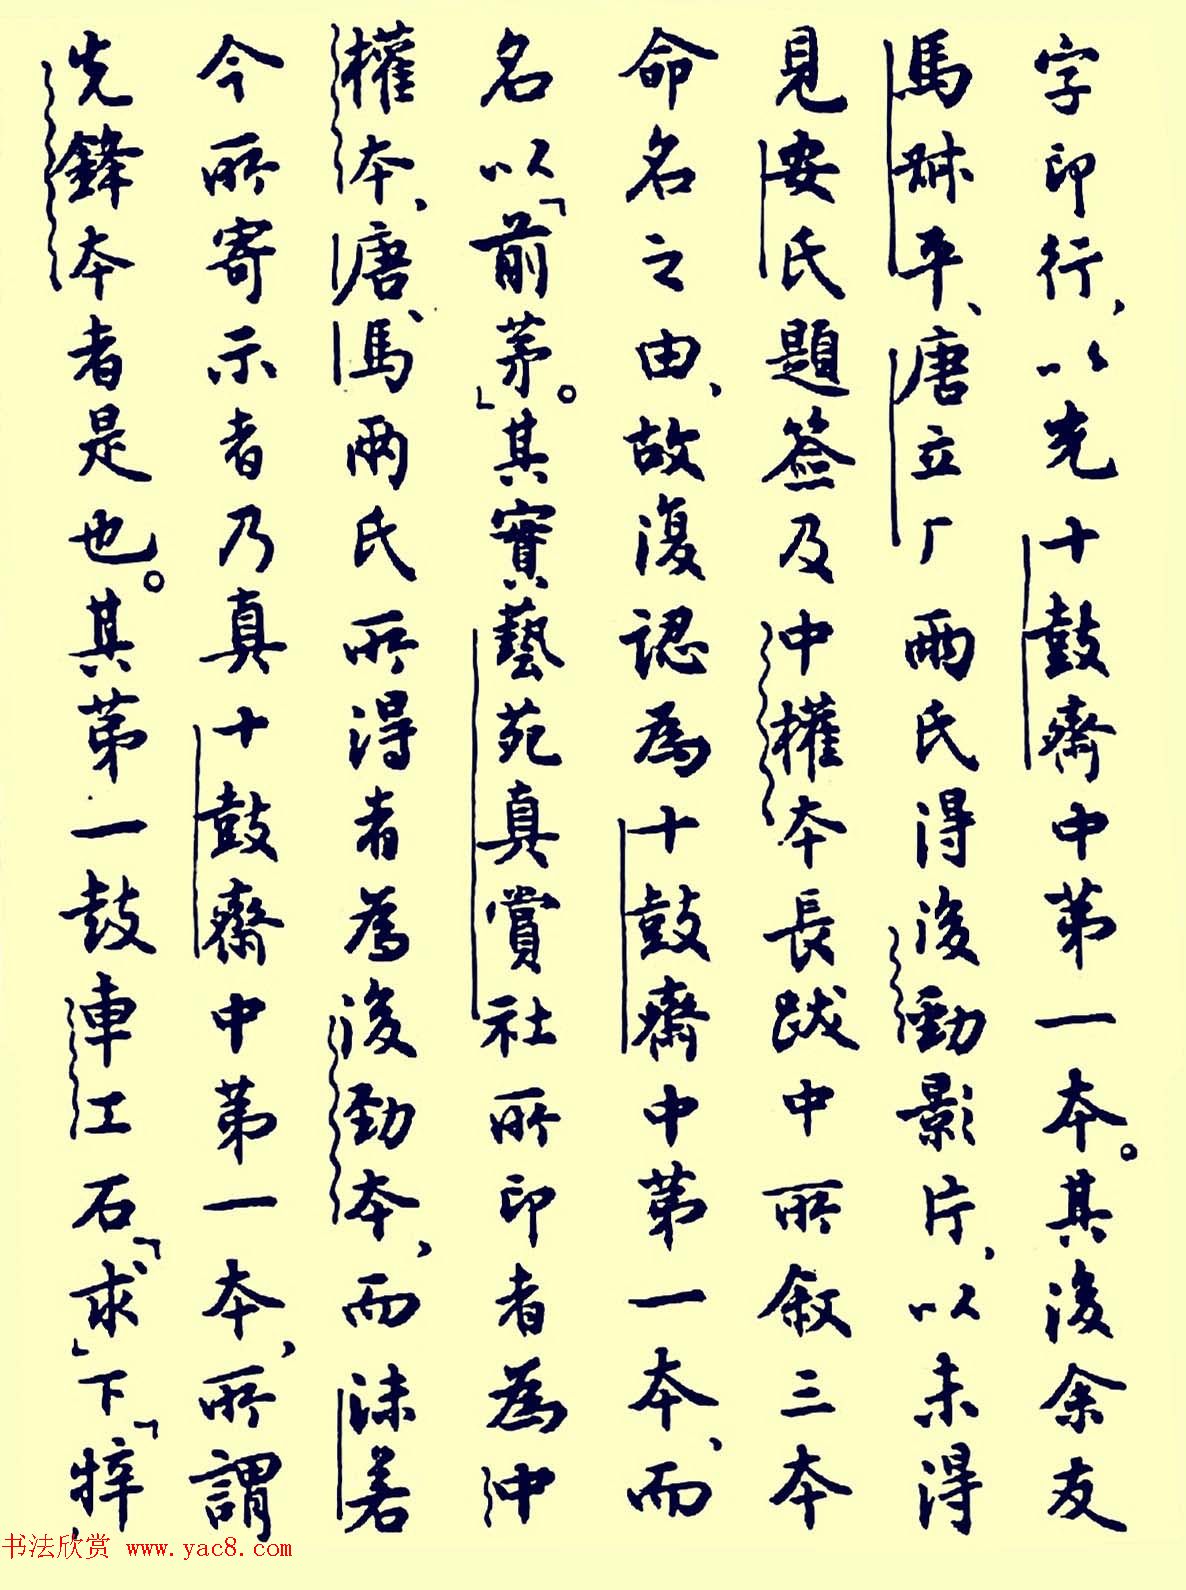 字印行，以充十鼓齋中第一本。其後余友
馬叔平、唐立厂兩氏得後勁影片，以未得
見安氏題簽及中權本長跋中所叙三本
命名之由，故復認為十鼓齋中第一本，而
名以「前茅」。其實藝苑真賞社所印者為中
權本，唐、馬兩氏所得者為後勁本，而沫若
今所寄示者乃真十鼓齋中第一本，所謂
先鋒本者是也。其第一鼓車工石「求」下「
书法欣赏 www.yac8.com